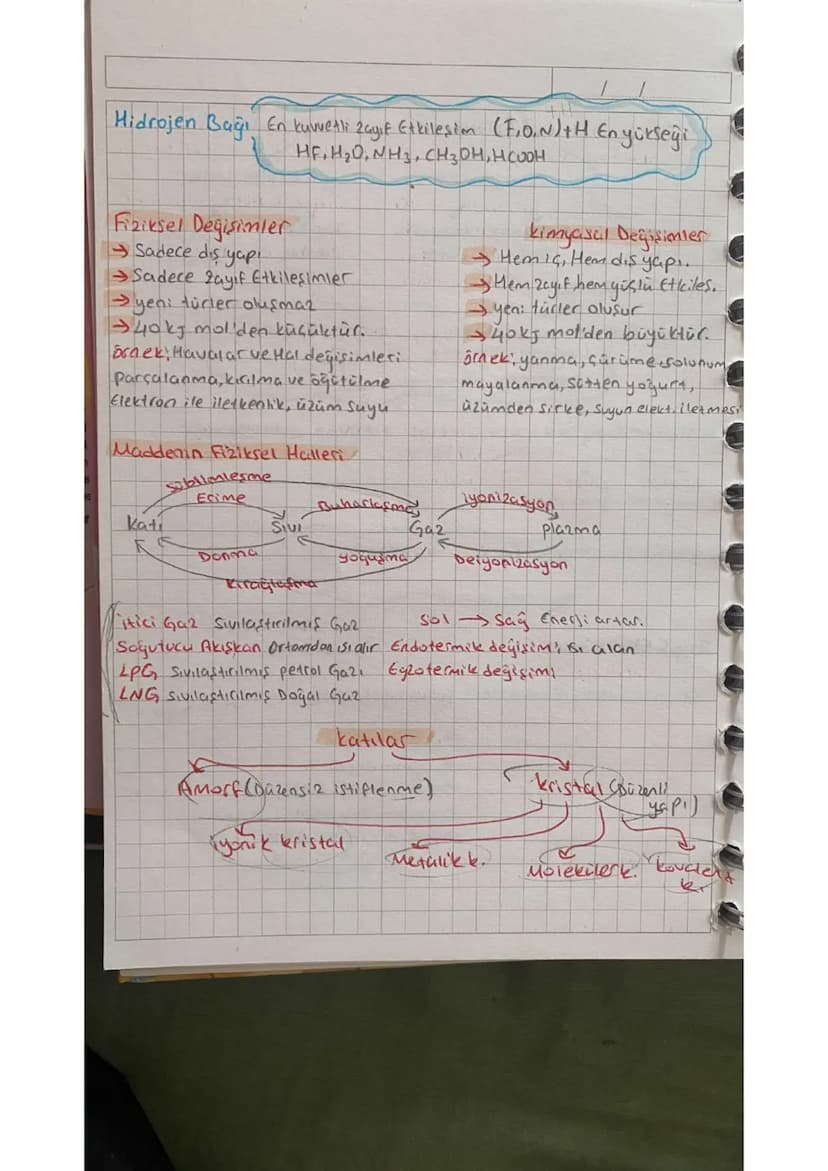 / /
Hidrojen Bağı En kuvvetli zayıf Etkileşim (F,O,N)+H En yükseği
HF, H2O, NH3, CH3OH, HCOOH
Fiziksel Değişimler
→ Sadece dış yapı
→ Sadece zayıf Etkileşimler
→ yeni türler oluşmaz
→ 40 kj mol'den küçüktür.
örnek; Havalar ve Hal değişimleri
parçalanma, kırılma ve öğütülme
Elektron ile iletkenlik, üzüm suyu
kimyasal Değişimler
→ Hem iç, Hem dış yapı.
→ Hem zayıf hem güçlü Etkileş.
→ yeni türler oluşur
→ 40 kj mol'den büyüktür.
örnek; yanma, çürüme, solunum
mayalanma, sütten yoğurt,
üzümden sirke, suyun elekt. iletmesi
Maddenin Fiziksel Halleri
süblimleşme
Erime Buharlaşma iyonizasyon
Katı Sıvı Gaz plazma
Donma yoğuşma Deiyonizasyon
Kırağılaşma
itici Gaz Sıvılaştırılmış Gaz
Soğutucu Akışkan Ortamdan ısı alır
LPG Sıvılaştırılmış petrol Gazı
LNG sıvılaştırılmış Doğal Gaz
Sol → Sağ Enerji artar.
Endotermik değişim; ısı alan
Egzotermik değişim;
katılar
Amorf (Düzensiz istiflenme) kristal (Düzenli
yapı)
iyonik kristal Metalik k. Moleküler k. kovalent
k.